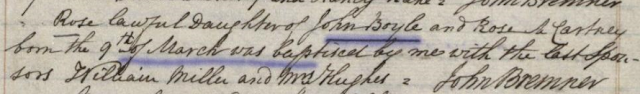 Rose lawful Daughter of John Boyle and Rose McCartney
born the 9th of March was baptised by me with the last Spon-
sors William Miller and Mrs Hughes = John Bremner